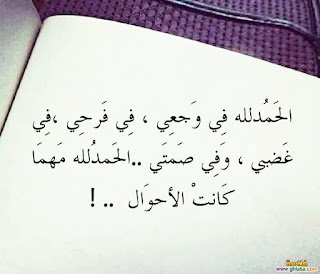 الحَمُدلله فِي وَجعِي ، فِي فَرحِي ،فِي
غَضبي ، وَفِي صَمتَي ..الحَمدُلله مَهمَا
كَانتْ الأحوَال .. !
www.ghlasa.com